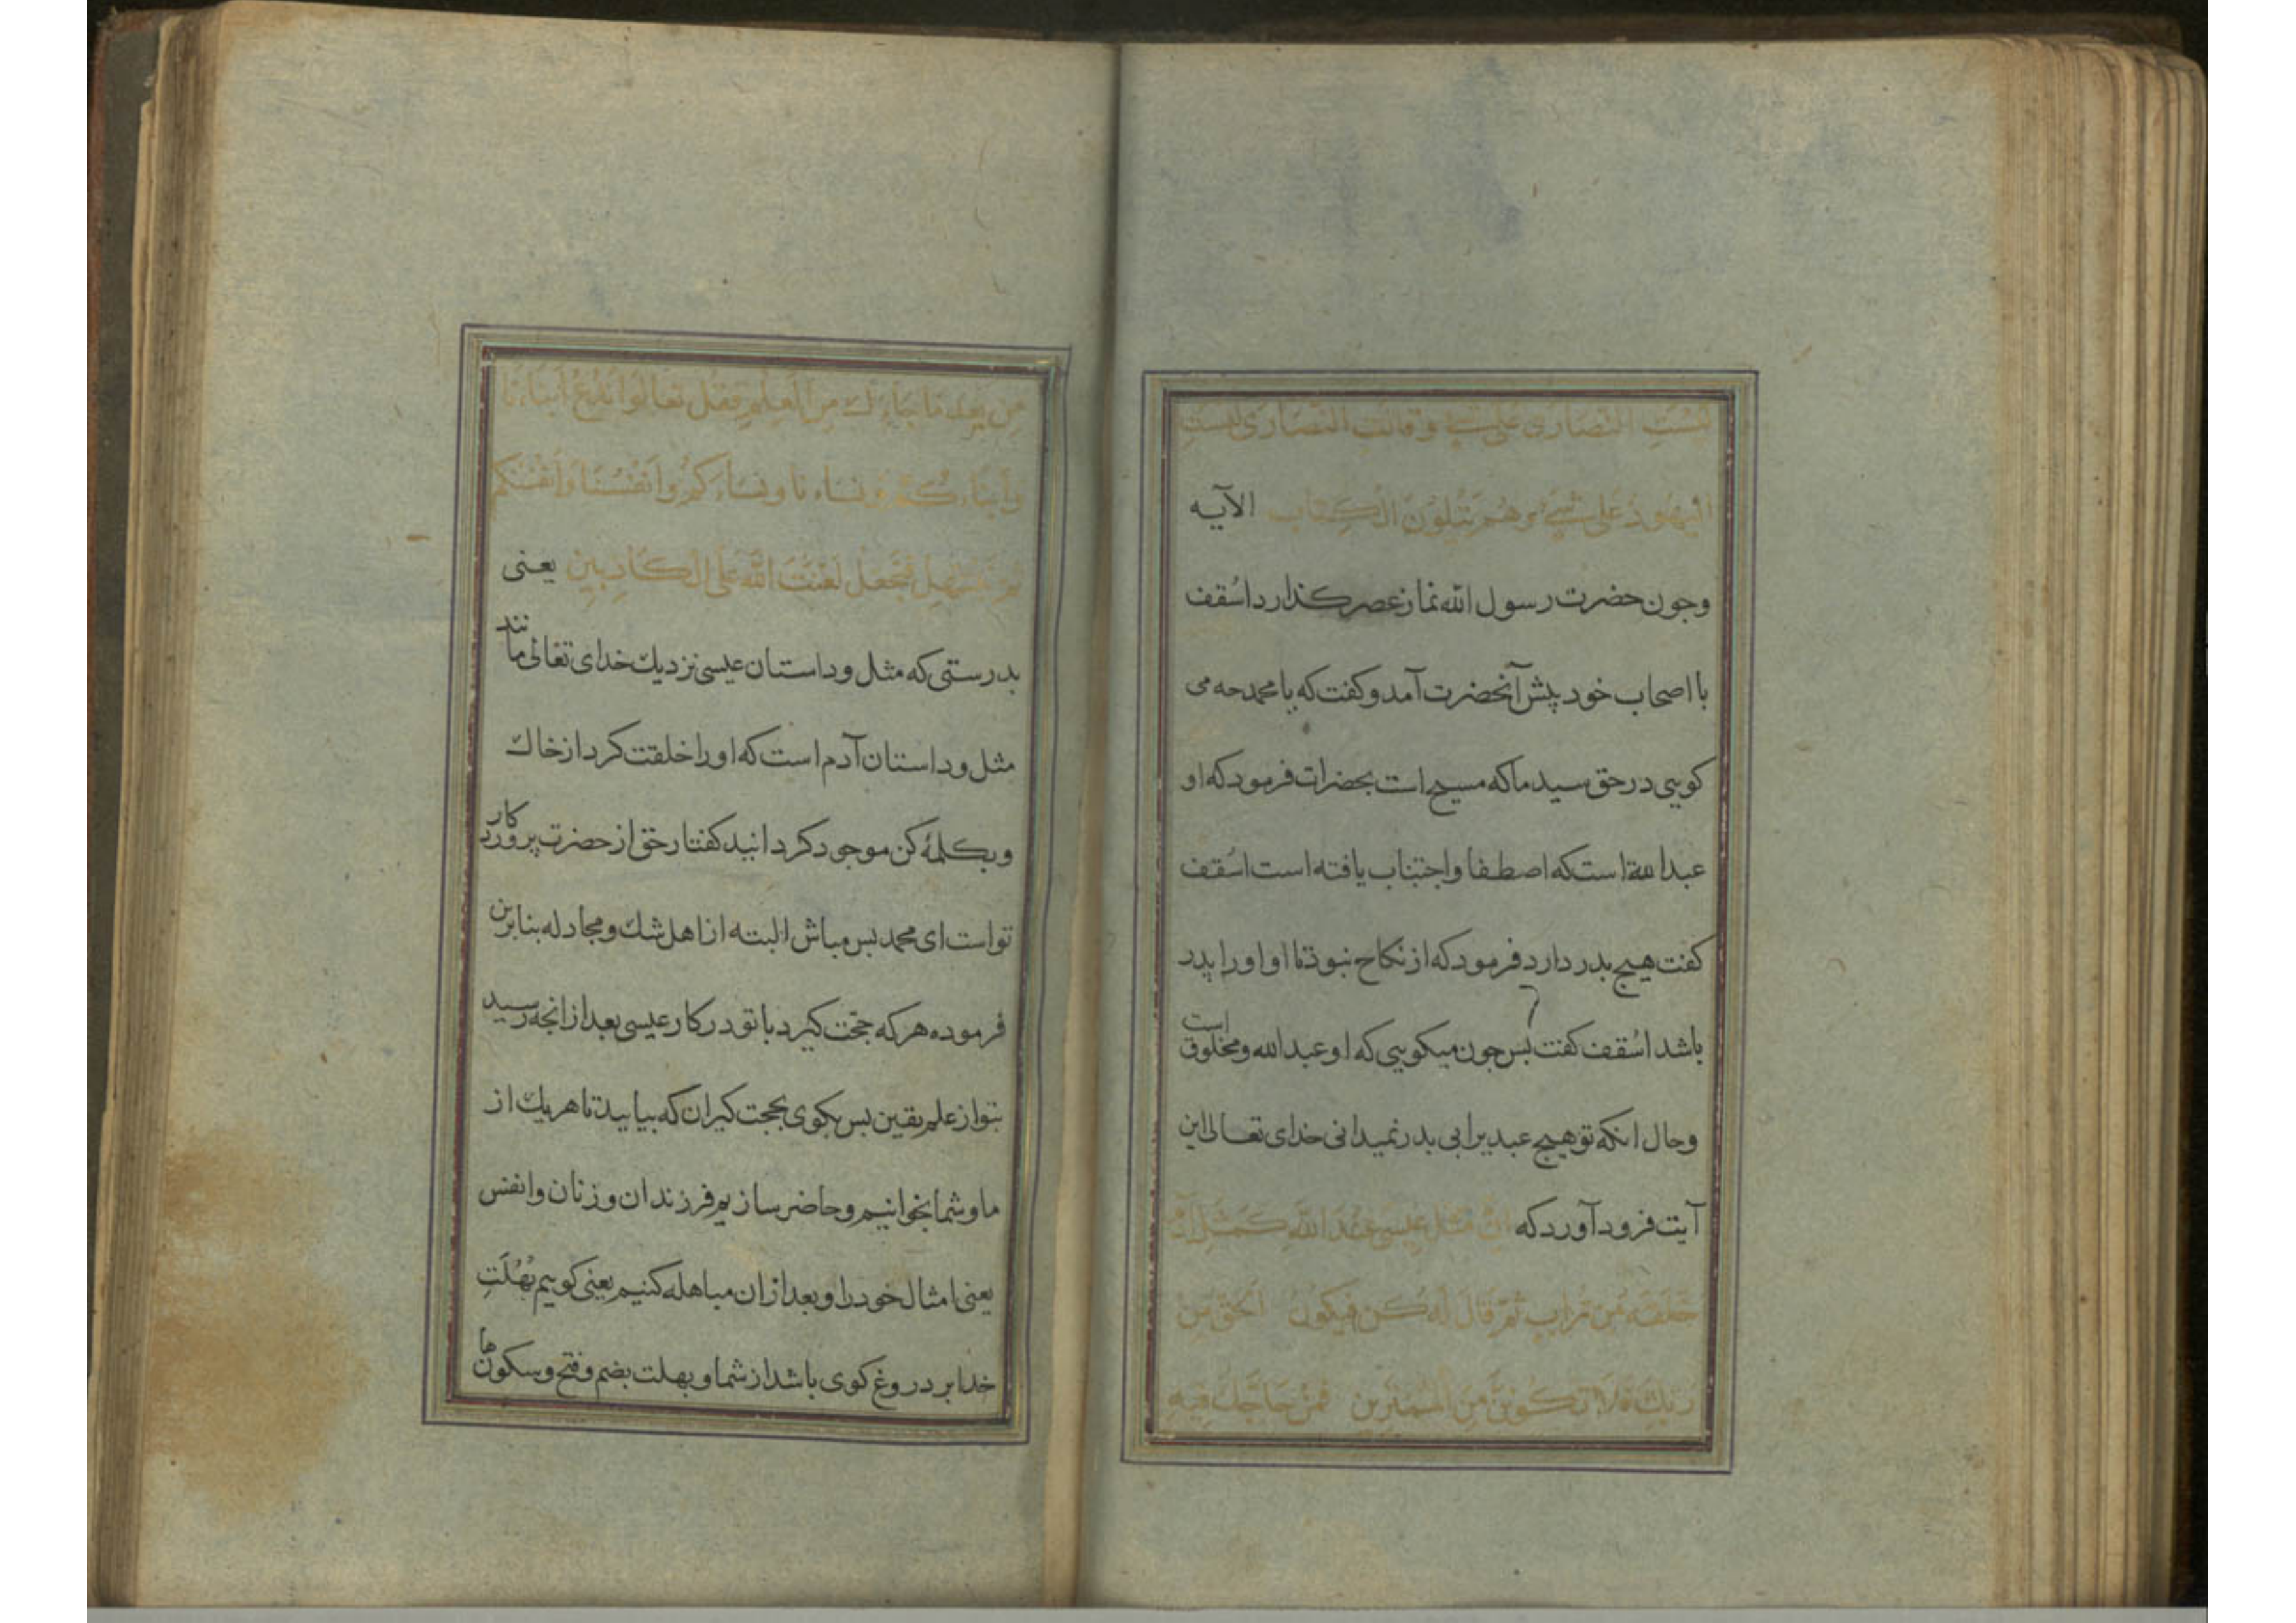 لیست النصاری علی شیء وقالت النصاری لیست
الیهود علی شیء وهم یتلون الکتاب الآیه
وجون حضرت رسول الله نماز عصر کذارد اسُقف
با اصحاب خود پیش آنحضرت آمد و کفت که یا محمد جه می
کویی در حق سید ما که مسیح است بحضرات فرمود که او
عبدالله است که اصطفا و اجتناب یافته است اسُقف
کفت هیج بدر دارد فرمود که از نکاح نبوذ تا او اورا پدر
باشد اسُقف کفت بس جون میکویی که او عبدالله و مخلوق است
وحال انکه تو هیج عبدیرا بی بدر نمیدانی خدای تعالی این
آیت فرود آورد که انّ مثل عیسی عند الله کمثل آدم
خلقه من تراب ثم قال له کن فیکون الحق من
ربك فلا تکوننّ من الممترین فمن حاجّك فیه
من بعد ما جاءك من العلم فقل تعالوا ندع ابناءنا
وابناءکم ونساءنا ونساءکم وانفسنا وانفسکم
ثم نبتهل فنجعل لعنت الله علی الکاذبین یعنی
بدرستی که مثل و داستان عیسی نزدیك خدای تعالی مانند
مثل و داستان آدم است که اورا خلقت کرد از خاك
و بکلمهٔ کن موجود کردانید کفتار حق از حضرت پروردکار
تو است ای محمد بس مباش البته از اهل شك و مجادله بنابرین
فرموده هرکه حجّت کیرد با تو در کار عیسی بعد از انجه رسید
بتو از علم یقین بس بکوی بحجت کیران که بیایید تا هر یك از
ما و شما بخوانیم و حاضر سازیم فرزندان و زنان و انفس
یعنی امثال خود را و بعد از ان مباهله کنیم یعنی کوییم بُهْلَتِ
خدا بر دروغ کوی باشد از شما و بهلت بضم و فتح و سکون ها